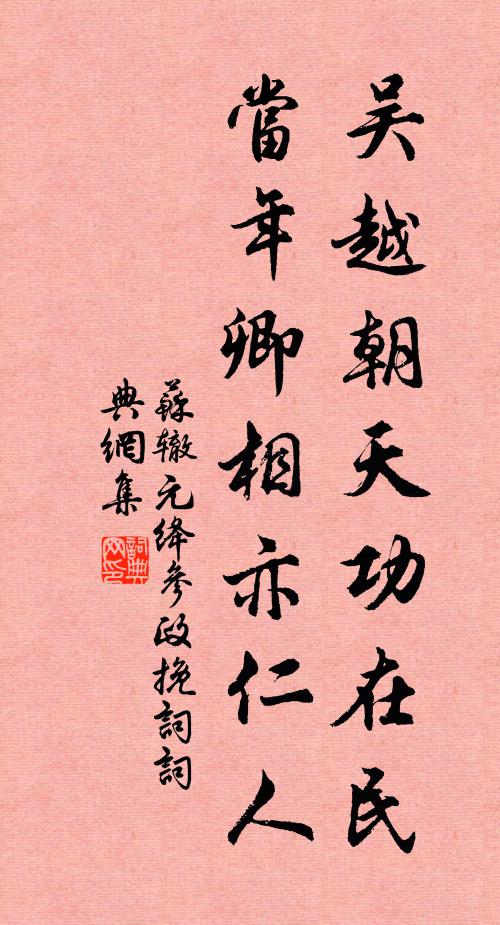 吴越朝天功在民
當年卿相亦仁人
蘇轍元绛參政挽詞詞
典網集
詞典網印